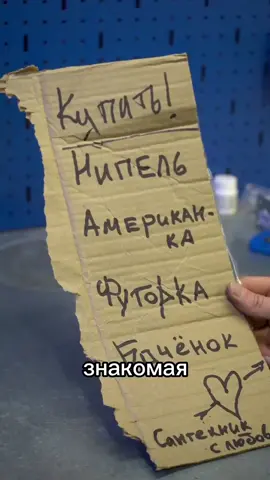 Купить!
Нипель
Американ-
ка
Футорка
Бочёнок
знакомая
Сантехник
с любов